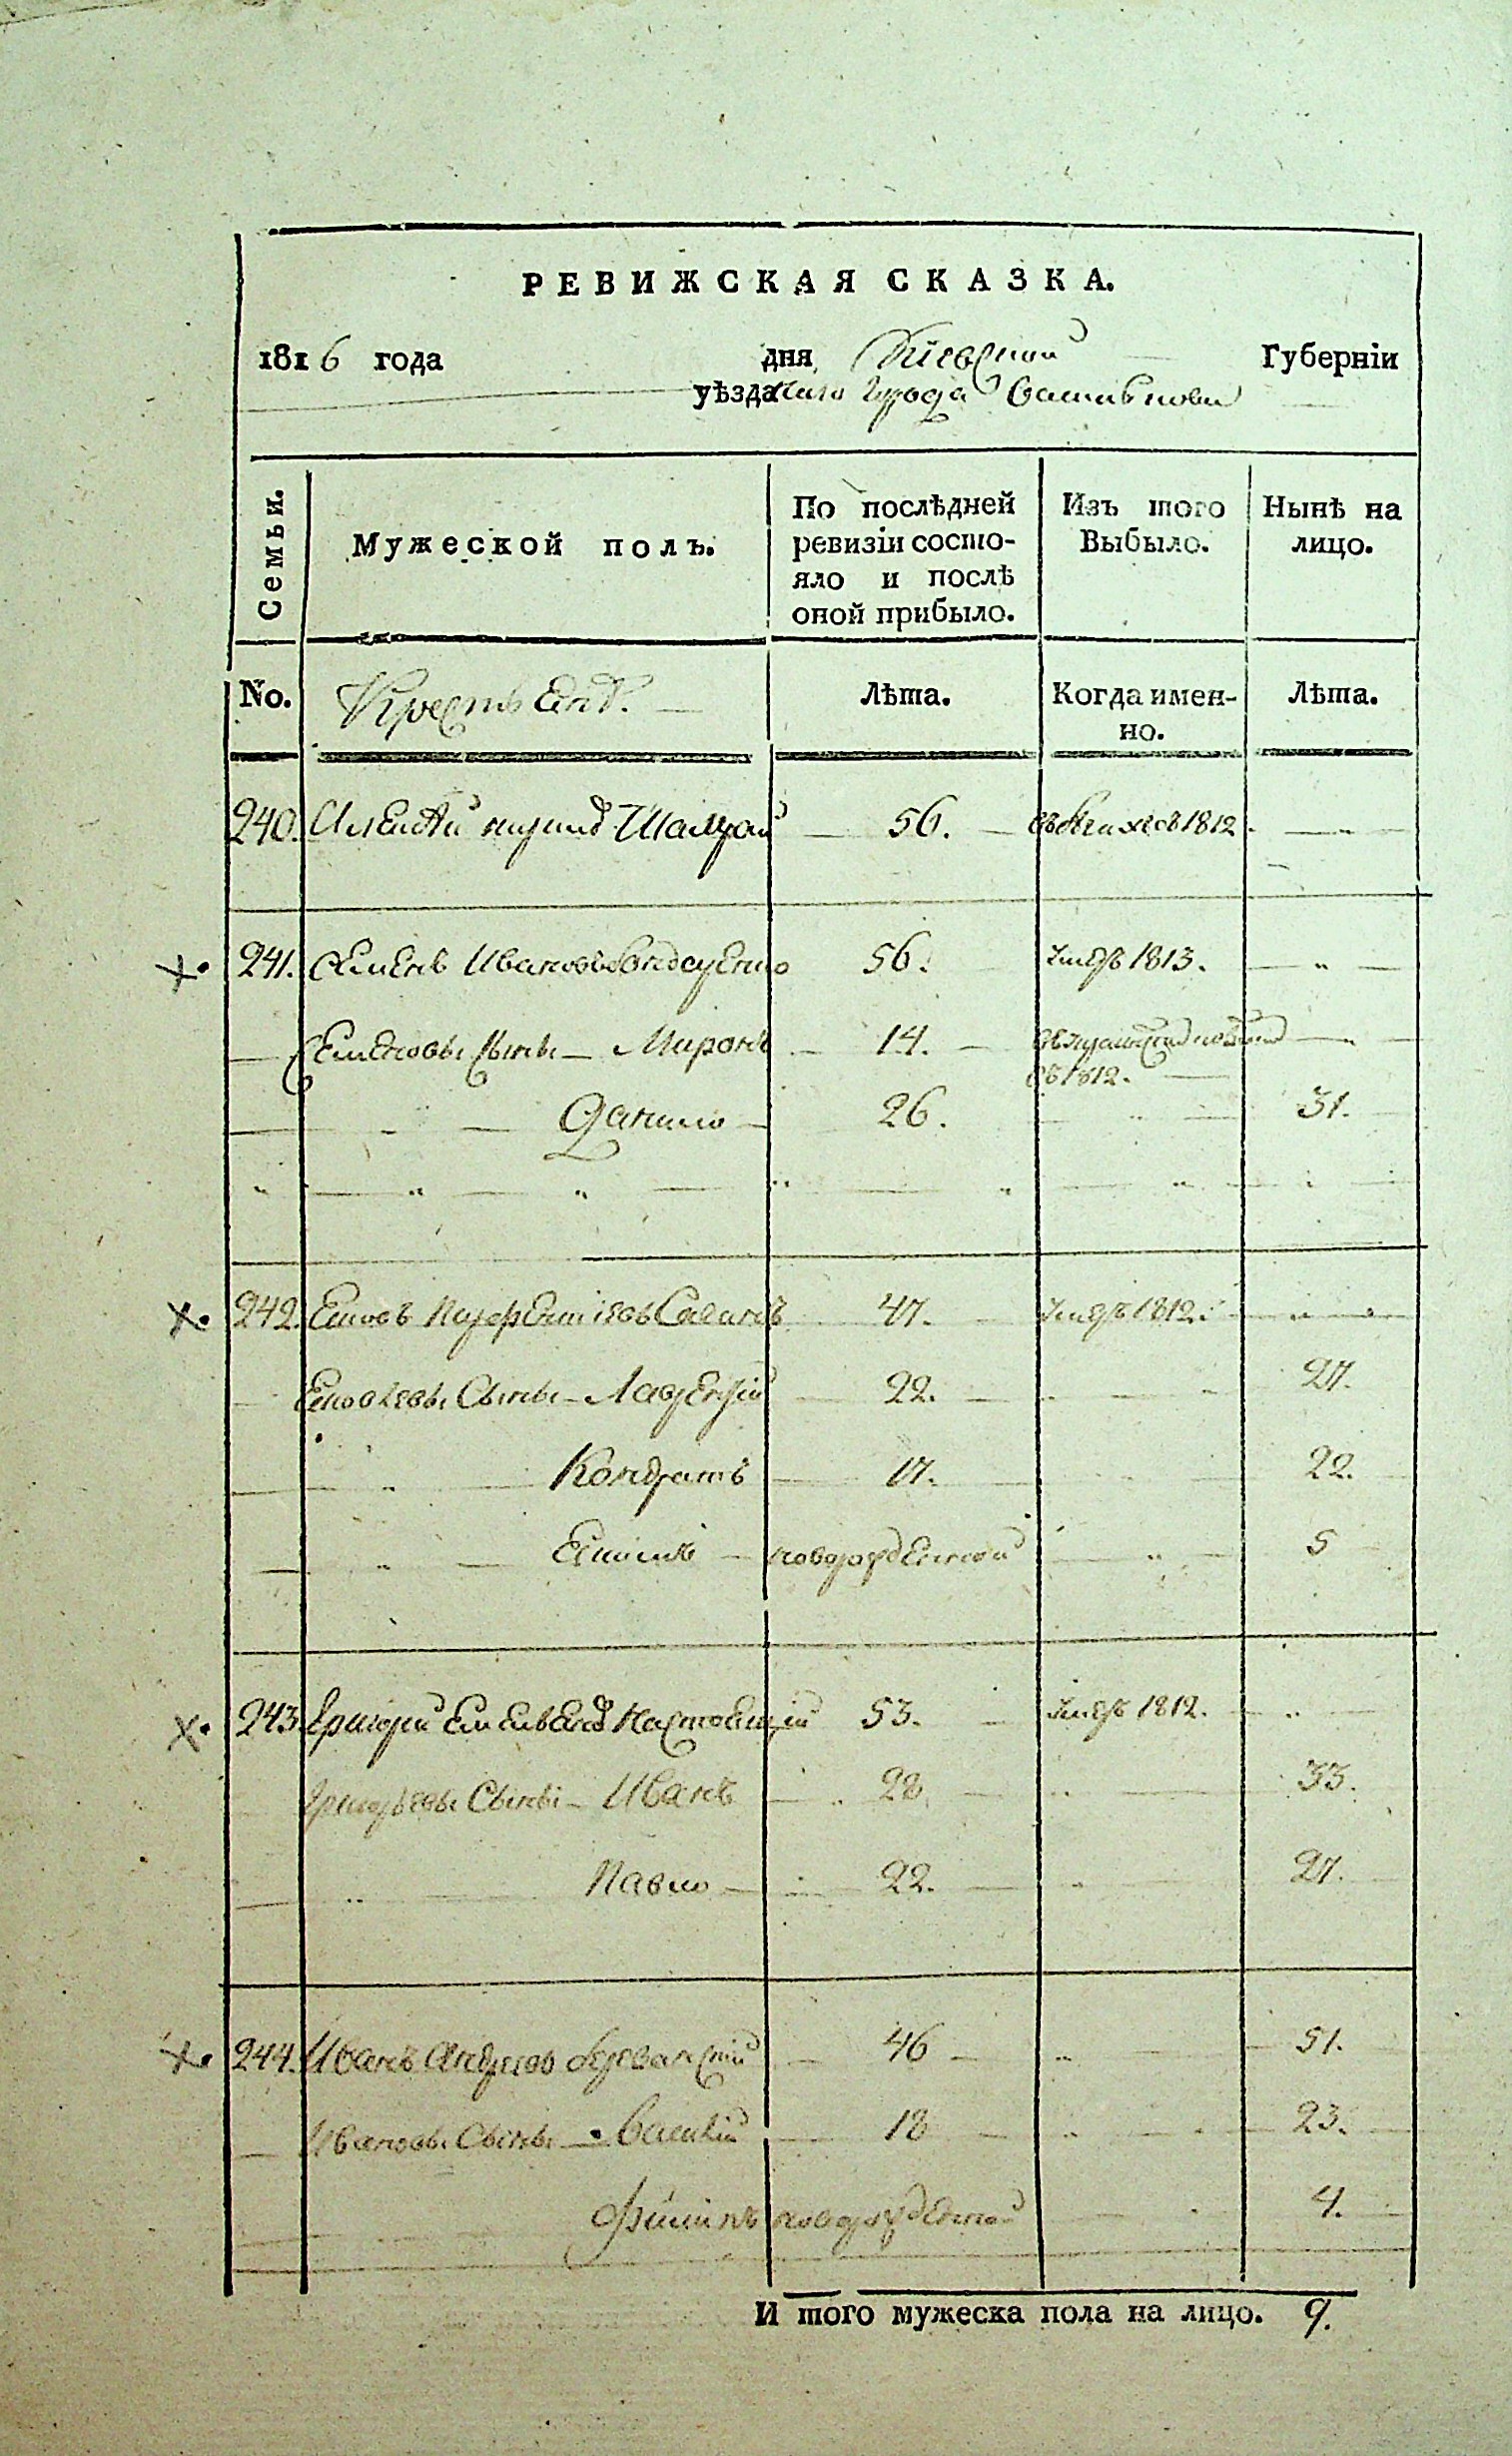 РЕВИЖСКАЯ СКАЗКА.
1816 года дня Кіевской Губерніи
уѣзда города Василькова
Семьи.
Мужеской полъ.
По послѣдней ревизіи состо-
яло и послѣ
оной прибыло.
Изъ того
Выбыло.
Нынѣ на
лицо.
No.
Крестьянъ.
Лѣта.
Когда имен-
но.
Лѣта.
240. Алексѣй Шамрай 56. 1812
241. Семенъ Ивановъ Бондаренко 56. умеръ 1813.
Семеновы сыны Миронъ 14.
въ 1812.
Данило 26. 31.
242. Яковъ 47. умеръ 1812.
Яковлевы Сыны Лаврентій 22. 27.
Кондратъ 17. 22.
Якимъ новорожденной 5
243. Григорій 53. умеръ 1812.
Григорьевы Сыны Иванъ 28 33.
Павло 22. 27.
244. Иванъ Андреевъ 46 51.
Ивановы Сыны Василій 18 23.
Филипъ новорожденной 4.
И того мужеска пола на лицо. 9.